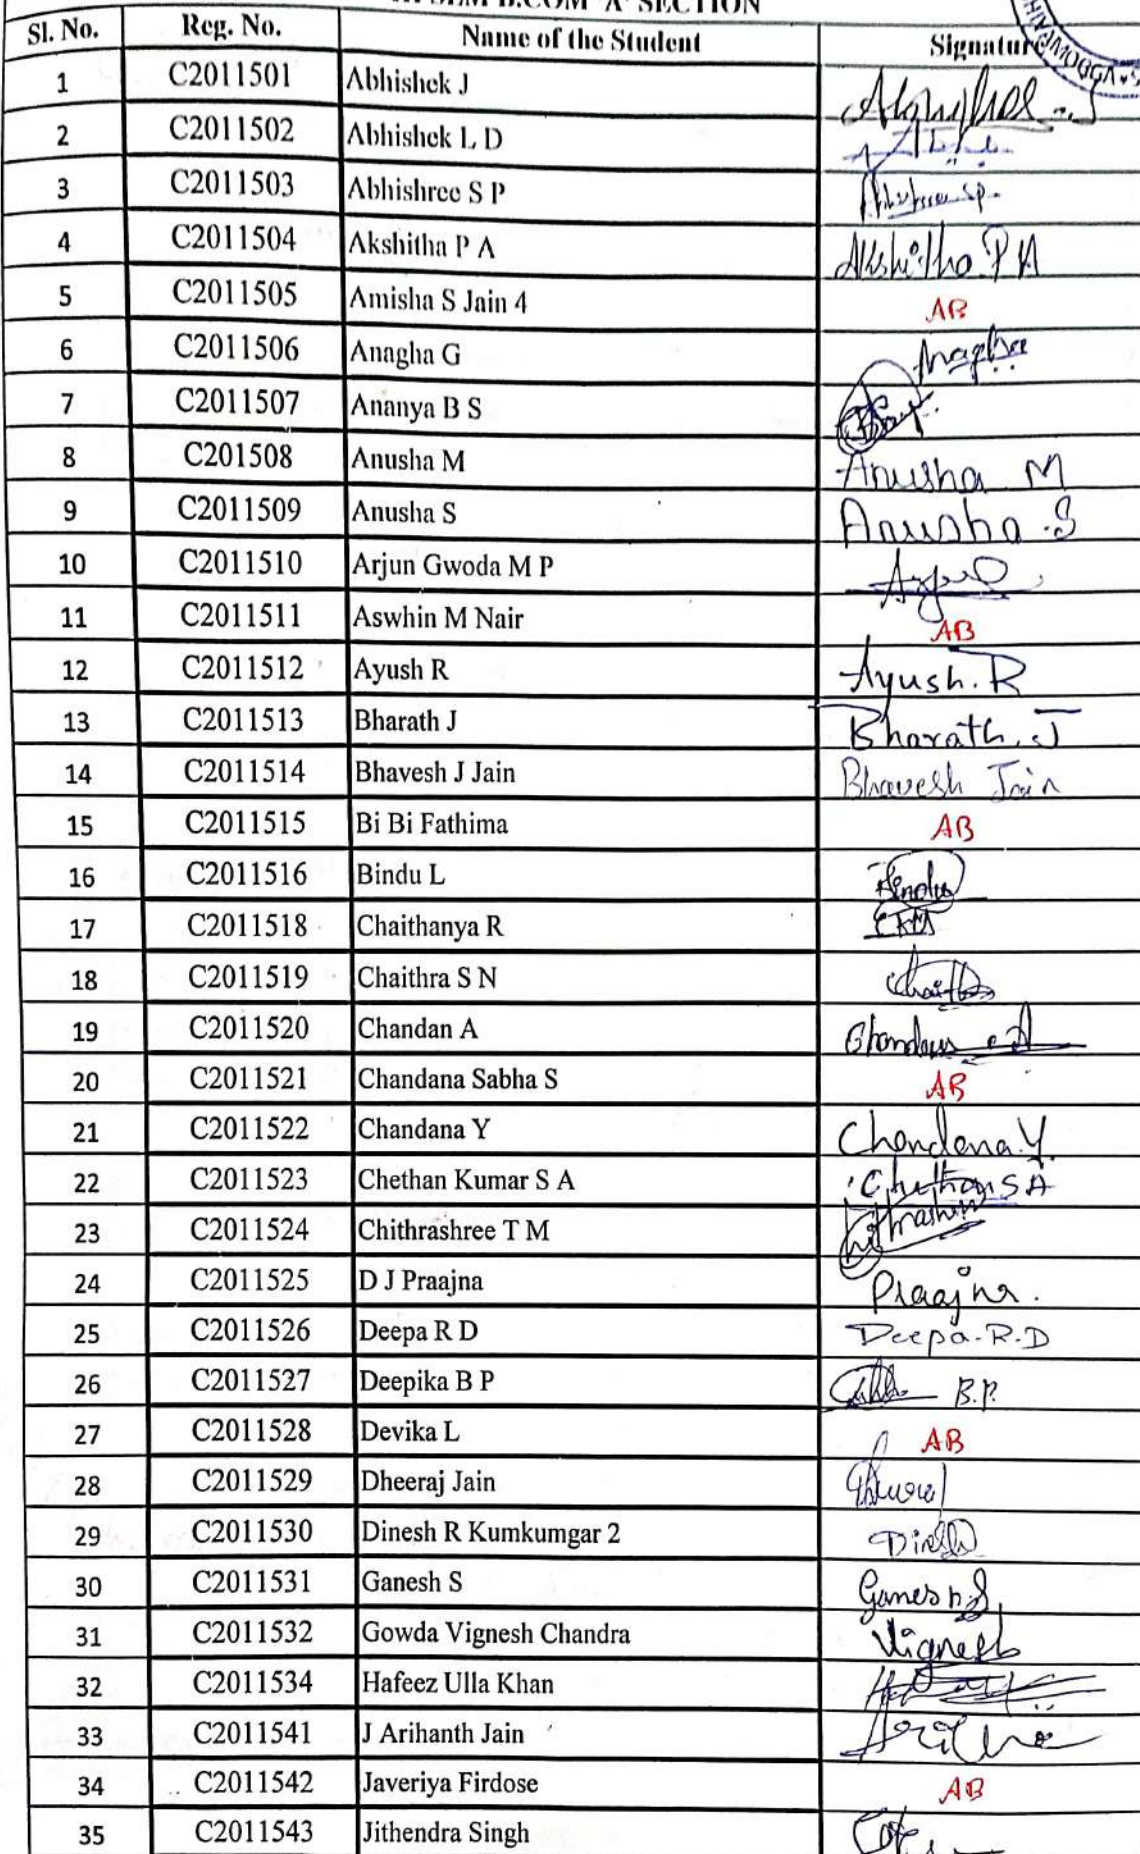 B.COM 'A' SECTION
Sl. No. Reg. No. Name of the Student Signature
1 C2011501 Abhishek J
2 C2011502 Abhishek L D
3 C2011503 Abhishree S P
4 C2011504 Akshitha P A Akshitha P A
5 C2011505 Amisha S Jain 4 AB
6 C2011506 Anagha G Anagha
7 C2011507 Ananya B S
8 C201508 Anusha M Anusha M
9 C2011509 Anusha S Anusha .S
10 C2011510 Arjun Gwoda M P
11 C2011511 Aswhin M Nair AB
12 C2011512 Ayush R Ayush.R
13 C2011513 Bharath J Bharath.J
14 C2011514 Bhavesh J Jain Bhavesh Jain
15 C2011515 Bi Bi Fathima AB
16 C2011516 Bindu L Bindu
17 C2011518 Chaithanya R
18 C2011519 Chaithra S N
19 C2011520 Chandan A
20 C2011521 Chandana Sabha S AB
21 C2011522 Chandana Y Chandana.Y
22 C2011523 Chethan Kumar S A Chethan S A
23 C2011524 Chithrashree T M
24 C2011525 D J Praajna Praajna.
25 C2011526 Deepa R D Deepa.R.D
26 C2011527 Deepika B P B.P.
27 C2011528 Devika L AB
28 C2011529 Dheeraj Jain
29 C2011530 Dinesh R Kumkumgar 2 Dinesh
30 C2011531 Ganesh S Ganesh.S
31 C2011532 Gowda Vignesh Chandra Vignesh
32 C2011534 Hafeez Ulla Khan
33 C2011541 J Arihanth Jain
34 C2011542 Javeriya Firdose AB
35 C2011543 Jithendra Singh